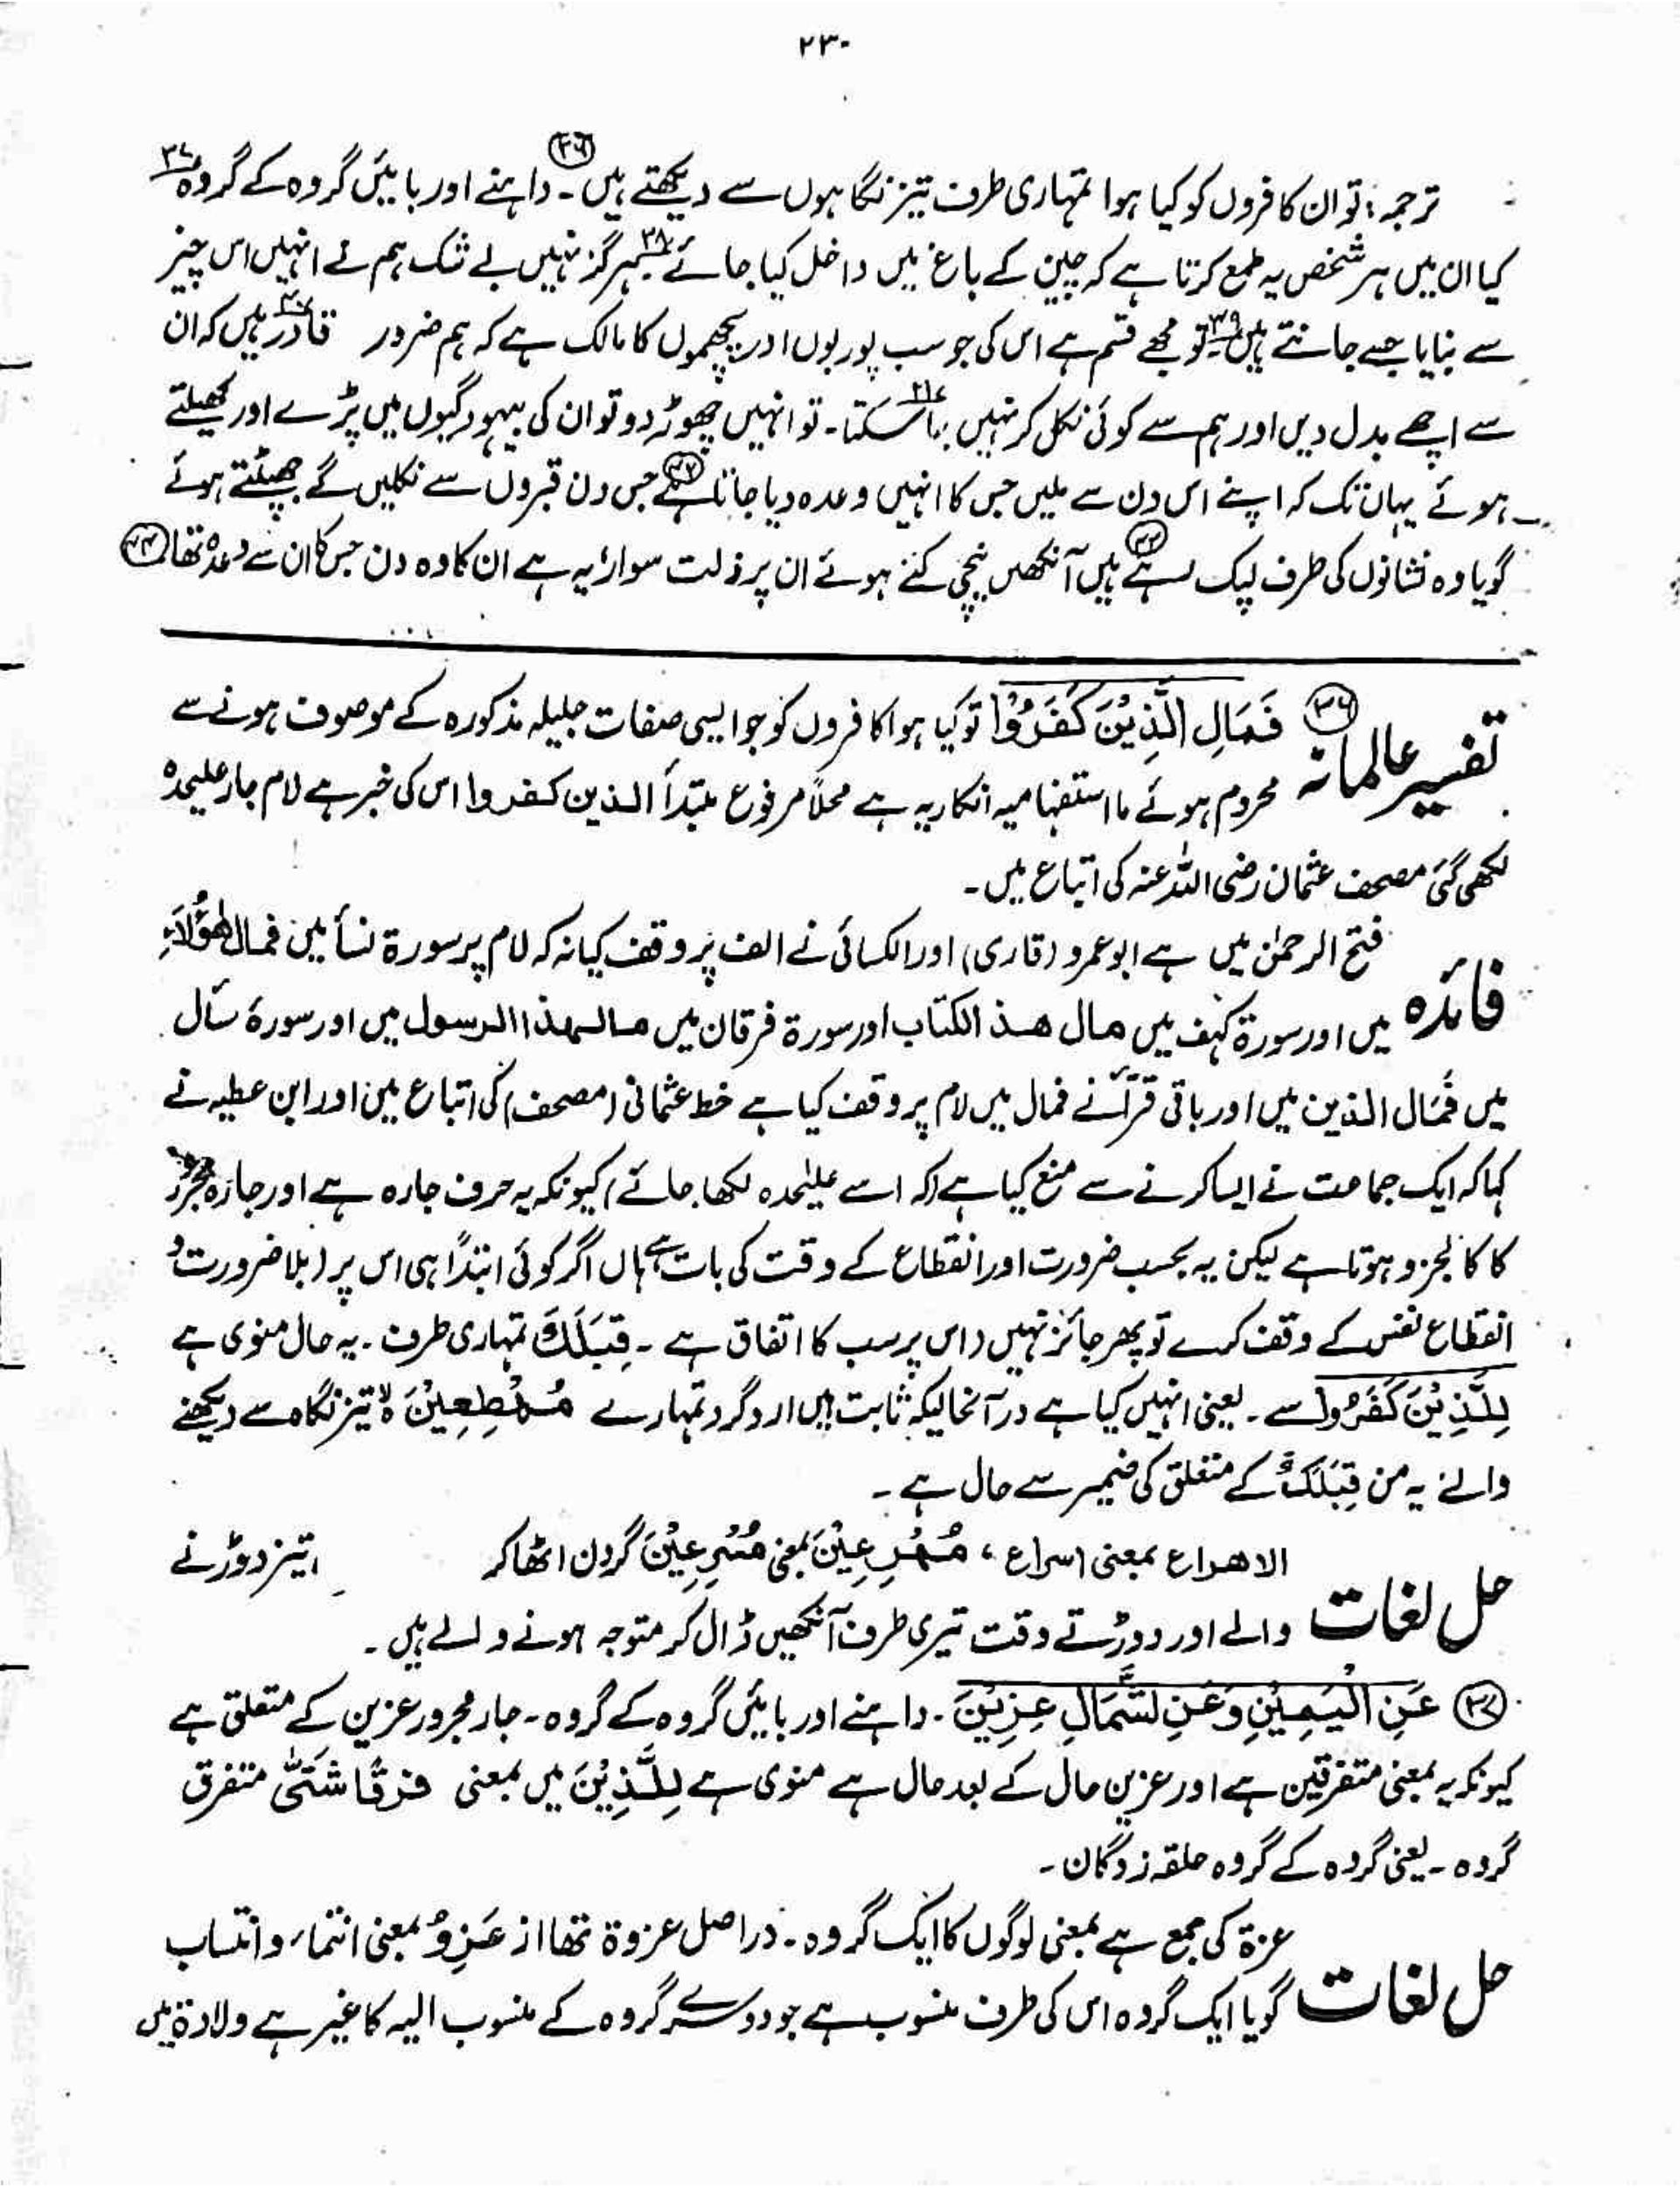 ۲۳۰
ترجمہ: تو ان کافروں کو کیا ہوا تمہاری طرف تیز نگاہوں سے دیکھتے ہیں۔ (۳۶) داہنے اور بائیں گروہ کے گروہ ۳۷
کیا ان میں ہر شخص یہ طمع کرتا ہے کہ چین کے باغ میں داخل کیا جائے ۳۸ ہرگز نہیں بے شک ہم نے انہیں اس چیز
سے بنایا جسے جانتے ہیں ۳۹ تو مجھے قسم ہے اس کی جو سب پوربوں اور پچھموں کا مالک ہے کہ ہم ضرور قادر ہیں ۴۰ کہ ان
سے اچھے بدل دیں اور ہم سے کوئی نکل کر نہیں جا سکتا ۴۱۔ تو انہیں چھوڑ دو تو ان کی بیہودگیوں میں پڑے اور کھیلتے
ہوئے یہاں تک کہ اپنے اس دن سے ملیں جس کا انہیں وعدہ دیا جاتا ہے (۴۲) جس دن قبروں سے نکلیں گے جھپٹتے ہوئے
گویا وہ نشانوں کی طرف لپک رہے ہیں (۴۳) آنکھیں نیچی کئے ہوئے ان پر ذلت سوار یہ ہے ان کا وہ دن جس کا ان سے وعدہ تھا (۴۴)
تفسیر عالمانہ (۳۶) فَمَالِ الَّذِیْنَ کَفَرُوْا تو کیا ہوا کافروں کو جو ایسی صفات جلیلہ مذکورہ کے موصوف ہونے سے
محروم ہوئے ما استفہامیہ انکاریہ ہے محلاً مرفوع مبتدأ الذین کفروا اس کی خبر ہے لام جار علیحدہ
لکھی گئی مصحف عثمان رضی اللہ عنہ کی اتباع میں۔
فائدہ فتح الرحمٰن میں ہے ابو عمرو (قاری) اور الکسائی نے الف پر وقف کیا نہ کہ لام پر سورۃ نسأ میں فمال ھٰؤُلَاءِ
میں اور سورۃ کہف میں مال ھذ الکتاب اور سورۃ فرقان میں مال ہذا الرسول میں اور سورۂ سأل
میں فَمَال الذین میں اور باقی قرآء نے فمال میں لام پر وقف کیا ہے خط عثمانی (مصحف) کی اتباع میں اور ابن عطیہ نے
کہا کہ ایک جماعت نے ایسا کرنے سے منع کیا ہے (کہ اسے علیٰحدہ لکھا جائے) کیونکہ یہ حرف جارہ ہے اور جارہ مجرور
کا کالجزو ہوتا ہے لیکن یہ بحسب ضرورت اور انقطاع کے وقت کی بات ہے ہاں اگر کوئی ابتدًا ہی اس پر (بلا ضرورت و
انقطاع نفس کے وقف کرے تو پھر جائز نہیں (اس پر سب کا اتفاق ہے۔ قِبَلَکَ تمہاری طرف۔ یہ حال منوی ہے
لِلَّذِیْنَ کَفَرُوْا سے۔ یعنی انہیں کیا ہے درآنحالیکہ ثابت ہیں اردگرد تمہارے مُہْطِعِیْنَ لا تیز نگاہ سے دیکھنے
والے یہ من قِبَلَکَ کے متعلق کی ضمیر سے حال ہے۔
حل لغات الاھراع بمعنی اسراع، مُہْرِعِیْنَ بمعنی مُسْرِعِیْنَ گردن اٹھا کر تیز دوڑنے
والے اور دوڑتے وقت تیری طرف آنکھیں ڈال کر متوجہ ہونے والے ہیں۔
(۳۷) عَنِ الْیَمِیْنِ وَعَنِ لشِّمَالِ عِزِیْنَ۔ داہنے اور بائیں گروہ کے گروہ۔ جار مجرور عزین کے متعلق ہے
کیونکہ یہ بمعنی متفرقین ہے اور عزین حال کے بعد حال ہے منوی ہے لِلَّذِیْنَ میں بمعنی فرقًا شَتّٰی متفرق
گروہ۔ یعنی گروہ کے گروہ حلقہ زدگان۔
حل لغات عزۃ کی جمع ہے بمعنی لوگوں کا ایک گروہ۔ دراصل عزوۃ تھا از عَزْوٌ بمعنی انتماء و انتساب
گویا ایک گروہ اس کی طرف منسوب ہے جو دوسرے گروہ کے منسوب الیہ کا غیر ہے ولادۃ میں